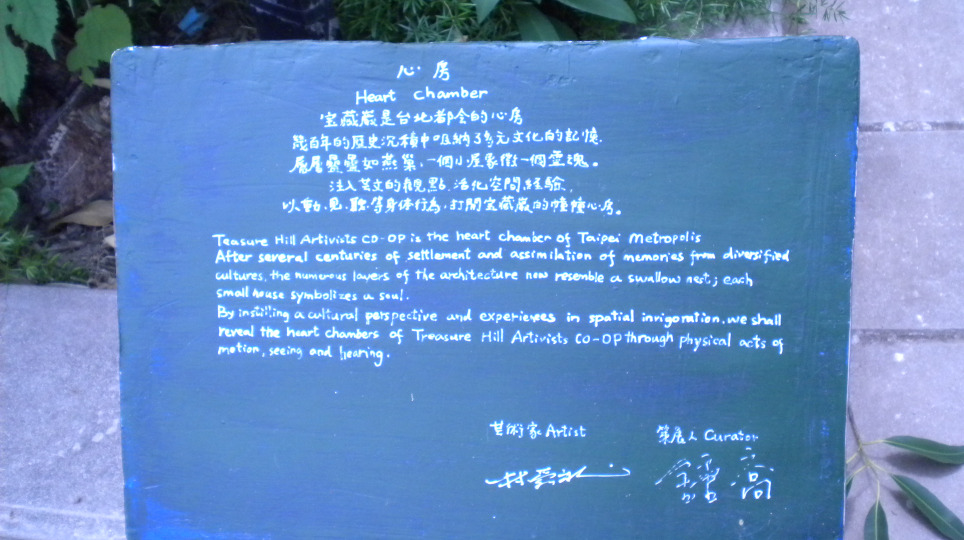 心房
Heart chamber
宝藏巖是台北都会的心房
幾百年的歷史沉積中吸納了多元文化的記憶.
層層疊疊如燕巢,一個小屋象徵一個靈魂。
注入艺文的觀點.活化空間経驗,
以動.見.聽.等身体行為.打開宝藏巖的心房。
Teasure Hill Artivists CO-OP is the heart chamber of Taipei Metropolis
After several centuries of settlement and assimilation of memories from diversified
cultures, the numurous layers of the architecture now resemble a swallow nest; each
small house symbolizes a soul.
By instilling a cultural perspective and experiences in spatial invigoration, we shall
reveal the heart chambers of Treasure Hill Artivists CO-OP through physical acts of
motion, seeing and hearing.
艺術家 Artist 策展人 Curator